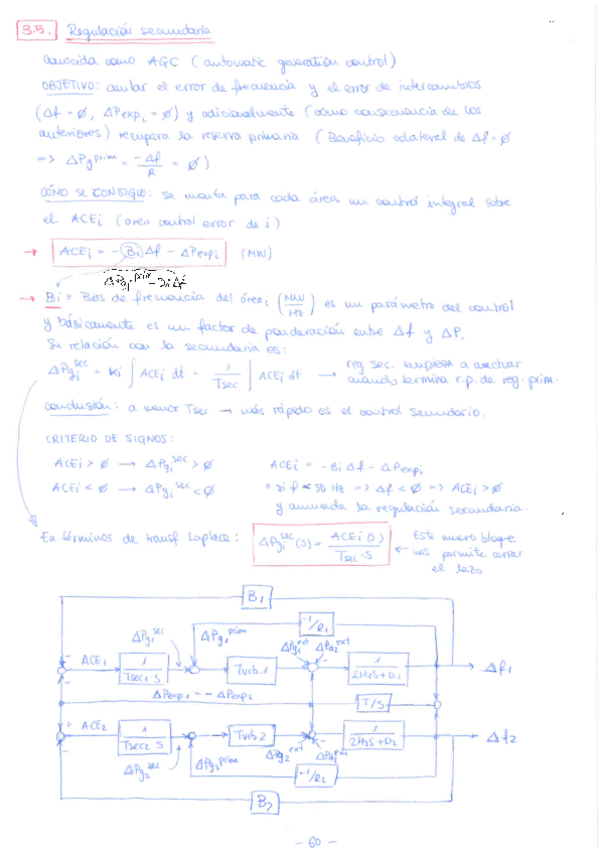 3.5. Regulación secundaria
conocida como AGC (automatic generation control)
OBJETIVO: anular el error de frecuencia y el error de intercambios
(Δf = ∅, ΔPexpi = ∅) y adicionalmente (como consecuencia de los
anteriores) recupera la reserva primaria (Beneficio colateral de Δf = ∅
=> ΔPg^prim = -Δf/R = ∅).
CÓMO SE CONSIGUE: se monta para cada área un control integral sobre
el ACEi (area control error de i)
→ ACEi = -Bi Δf - ΔPexpi (MW)
ΔPgi^prim - Di Δf
→ Bi = Bias de frecuencia del área i (MW/Hz) es un parámetro del control
y básicamente es un factor de ponderación entre Δf y ΔP.
Su relación con la secundaria es:
ΔPgi^sec = Ki ∫ ACEi dt = 1/Tsec ∫ ACEi dt → reg sec. empieza a marchar
cuando termina r.p. de reg. prim.
conclusión: a menor Tsec → más rápido es el control secundario.
CRITERIO DE SIGNOS:
ACEi > ∅ → ΔPgi^sec > ∅ ACEi = -Bi Δf - ΔPexpi
ACEi < ∅ → ΔPgi^sec < ∅ si f < 50 Hz => Δf < ∅ => ACEi > ∅
y aumenta la regulación secundaria.
En términos de transf. Laplace: ΔPgi^sec(s) = ACEi(s)/Tsec·S ← Este nuevo bloque
nos permite cerrar
el lazo
B1
ΔPg1^sec ΔPg1^prim -1/R1
ΔPg1^ext ΔPd1^ext
- ACE1 1/Tsec1·S Turb.1 - 1/2H1S+D1 Δf1
-
ΔPexp1 = -ΔPexp2 T/S
+ ACE2 1/Tsec2·S Turb.2 - 1/2H2S+D2 Δf2
-
ΔPg2^sec ΔPg2^prim ΔPg2^ext
-1/R2
B2
- 60 -